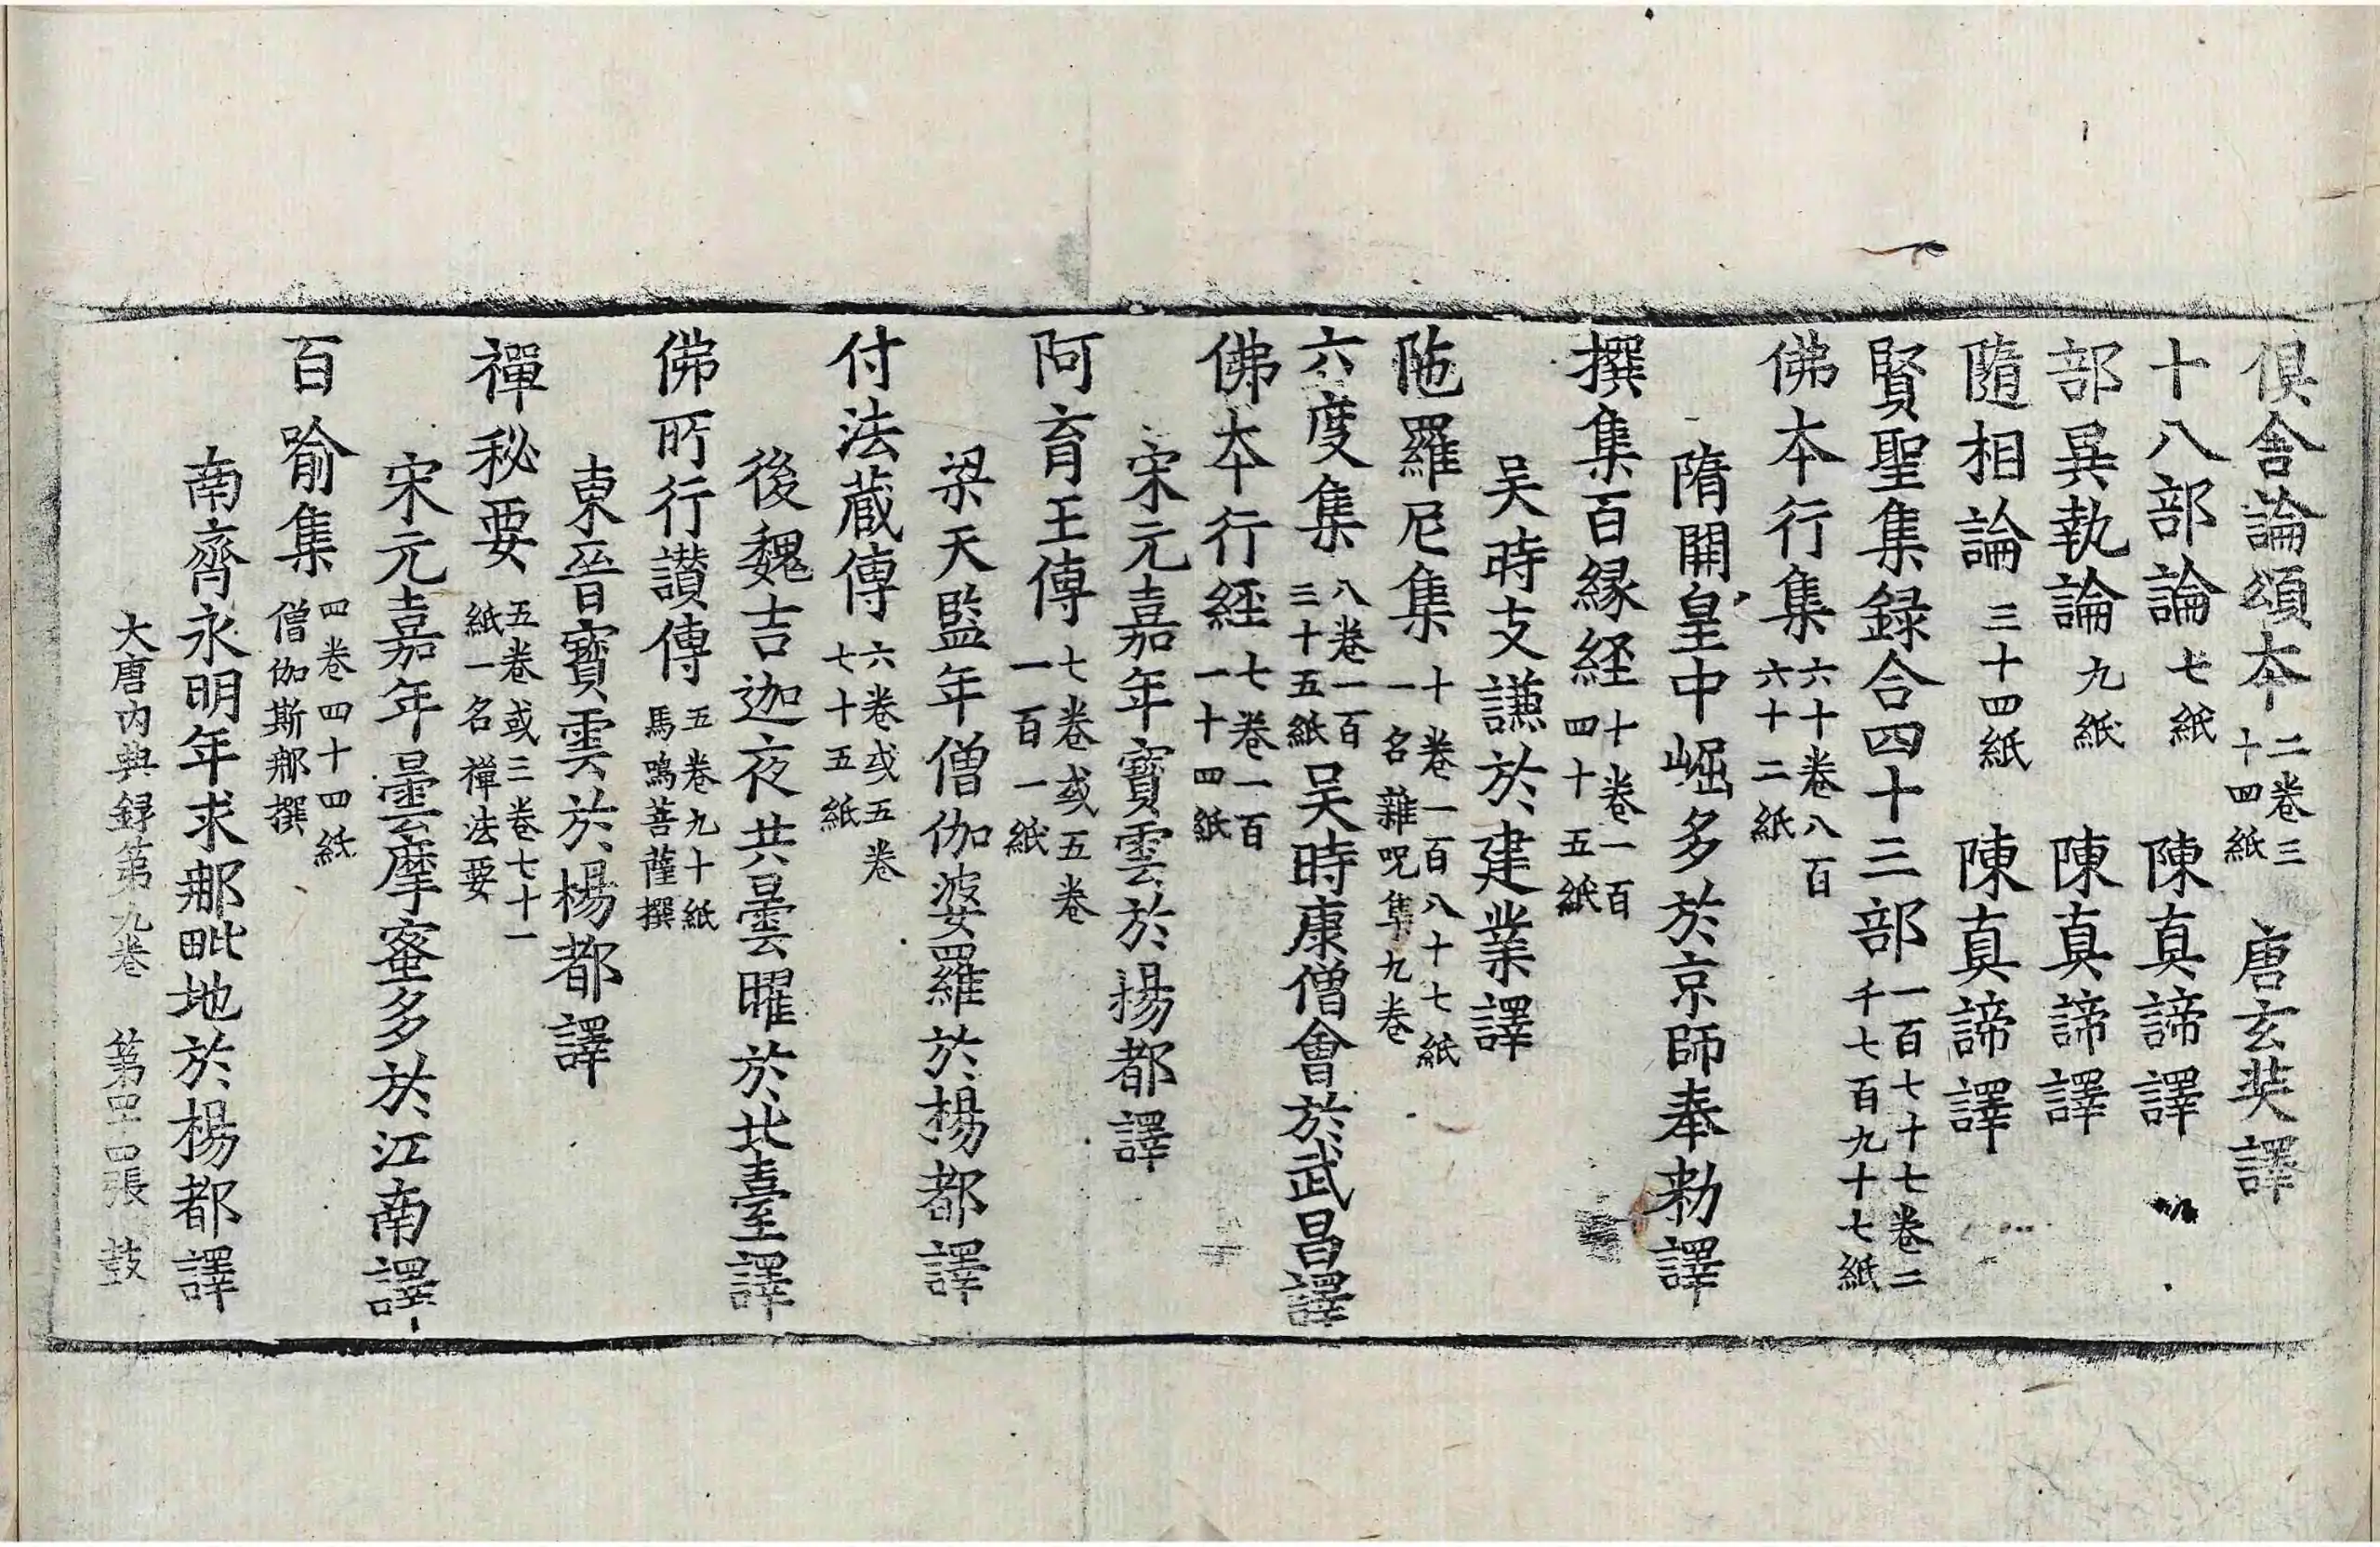 俱舍論頌本二卷三十四紙 唐玄奘譯
十八部論七紙 陳真諦譯
部異執論九紙 陳真諦譯
隨相論三十四紙 陳真諦譯
賢聖集録合四十三部一百七十七卷二千七百九十七紙
佛本行集六十卷八百六十二紙
隋開皇中崛多於京師奉勑譯
撰集百縁経十卷一百四十五紙
吴時支謙於建業譯
陁羅尼集十卷一百八十七紙一名雜呪集九卷
六度集八卷一百三十五紙吴時康僧會於武昌譯
佛本行経七卷一百一十四紙
宋元嘉年寶雲於揚都譯
阿育王傳七卷或五卷一百一紙
梁天監年僧伽婆羅於楊都譯
付法蔵傳六卷或五卷七十五紙
後魏吉迦夜共曇曜於北臺譯
佛所行讃傳五卷九十紙馬鳴菩薩撰
東晉寶雲於楊都譯
禪秘要五卷或三卷七十一紙一名禪法要
宋元嘉年曇摩蜜多於江南譯
百喻集四卷四十四紙僧伽斯那撰
南齊永明年求那毗地於楊都譯
大唐内典録第九卷 第罒四張 鼓